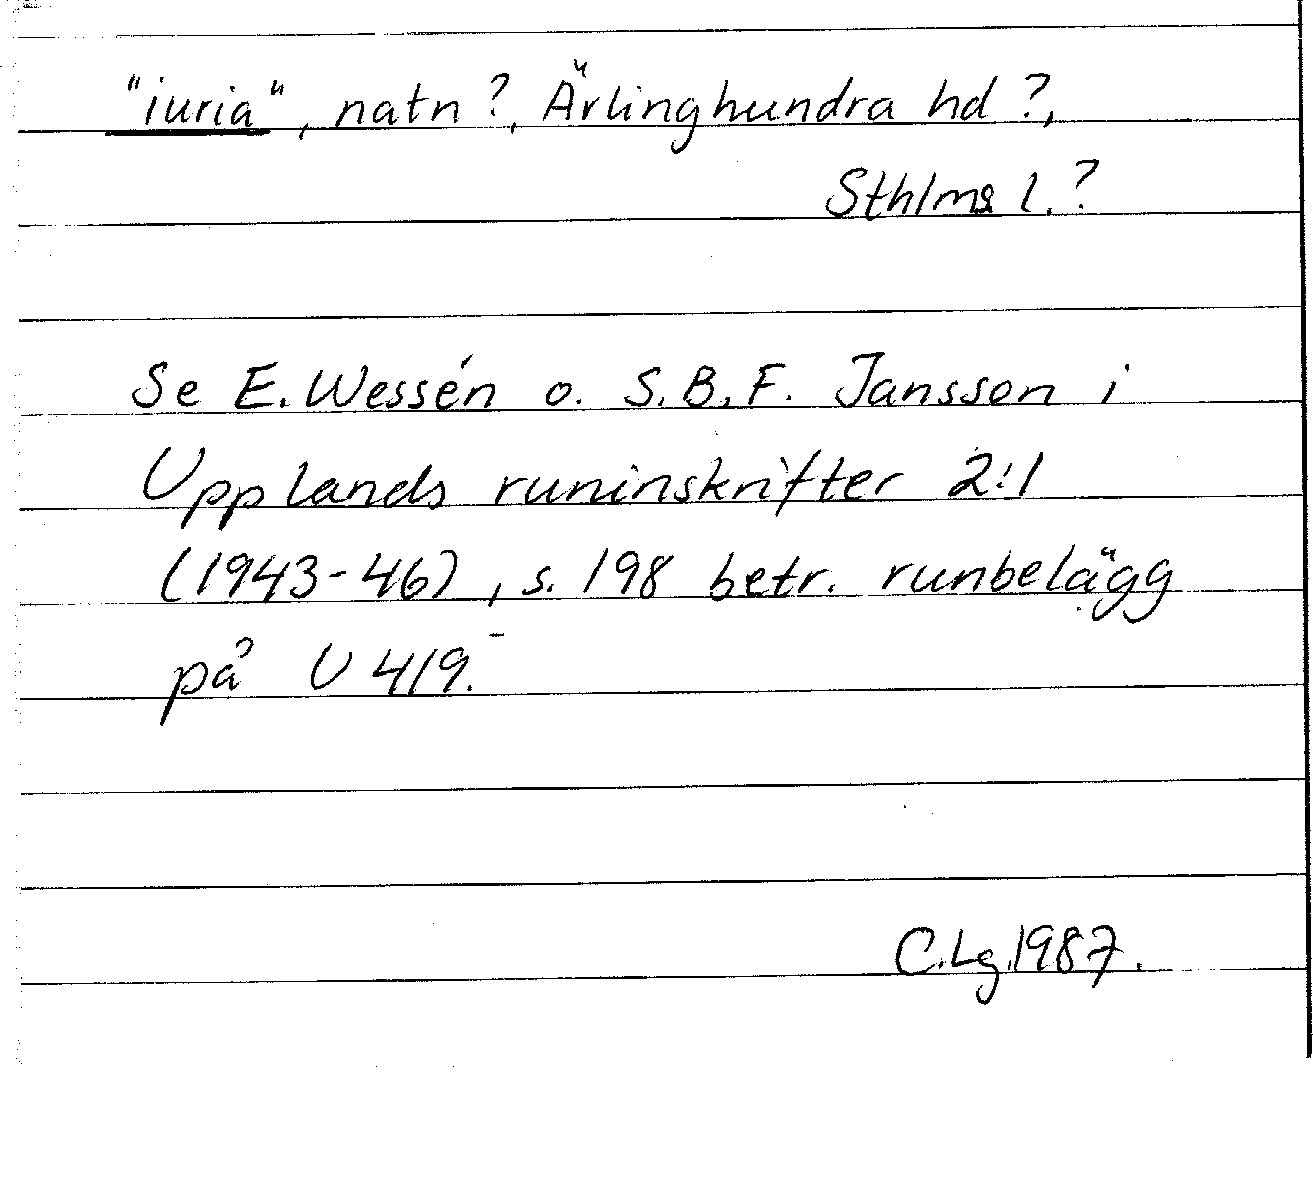 "iuria", natn?, Ärlinghundra hd?,
Sthlms l.?
Se E. Wessén o. S.B.F. Jansson i
Upplands runinskrifter 2:1
(1943-46), s. 198 betr. runbelägg
på U 419.
C.Lg.1987.